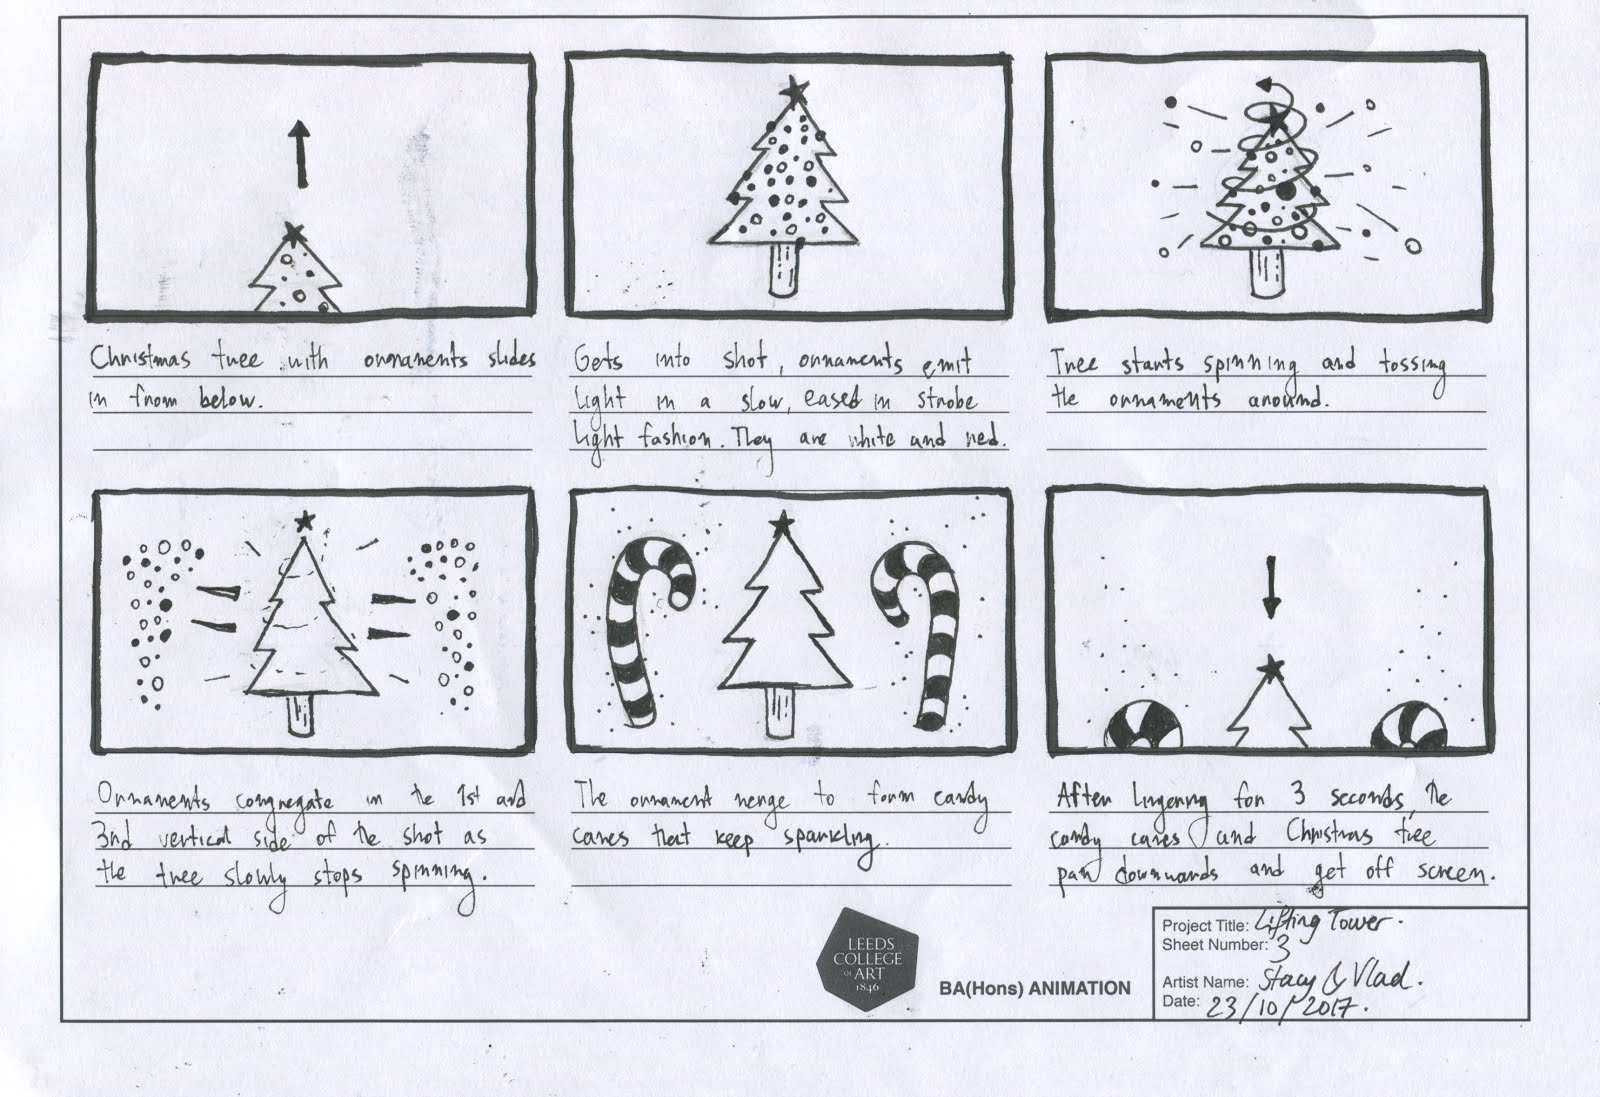 Christmas tree with ornaments slides
in from below.
Gets into shot, ornaments emit
light in a slow, eased in strobe
light fashion. They are white and red.
Tree starts spinning and tossing
the ornaments around.
Ornaments congregate in the 1st and
3nd vertical side of the shot as
the tree slowly stops spinning.
The ornament merge to form candy
canes that keep sparkling.
After lingering for 3 seconds, the
candy canes and Christmas tree
pan downwards and get off screen.
LEEDS
COLLEGE
OF ART
1846
BA(Hons) ANIMATION
Project Title: Lifting Tower.
Sheet Number: 3
Artist Name: Stacy & Vlad.
Date: 23/10/2017.